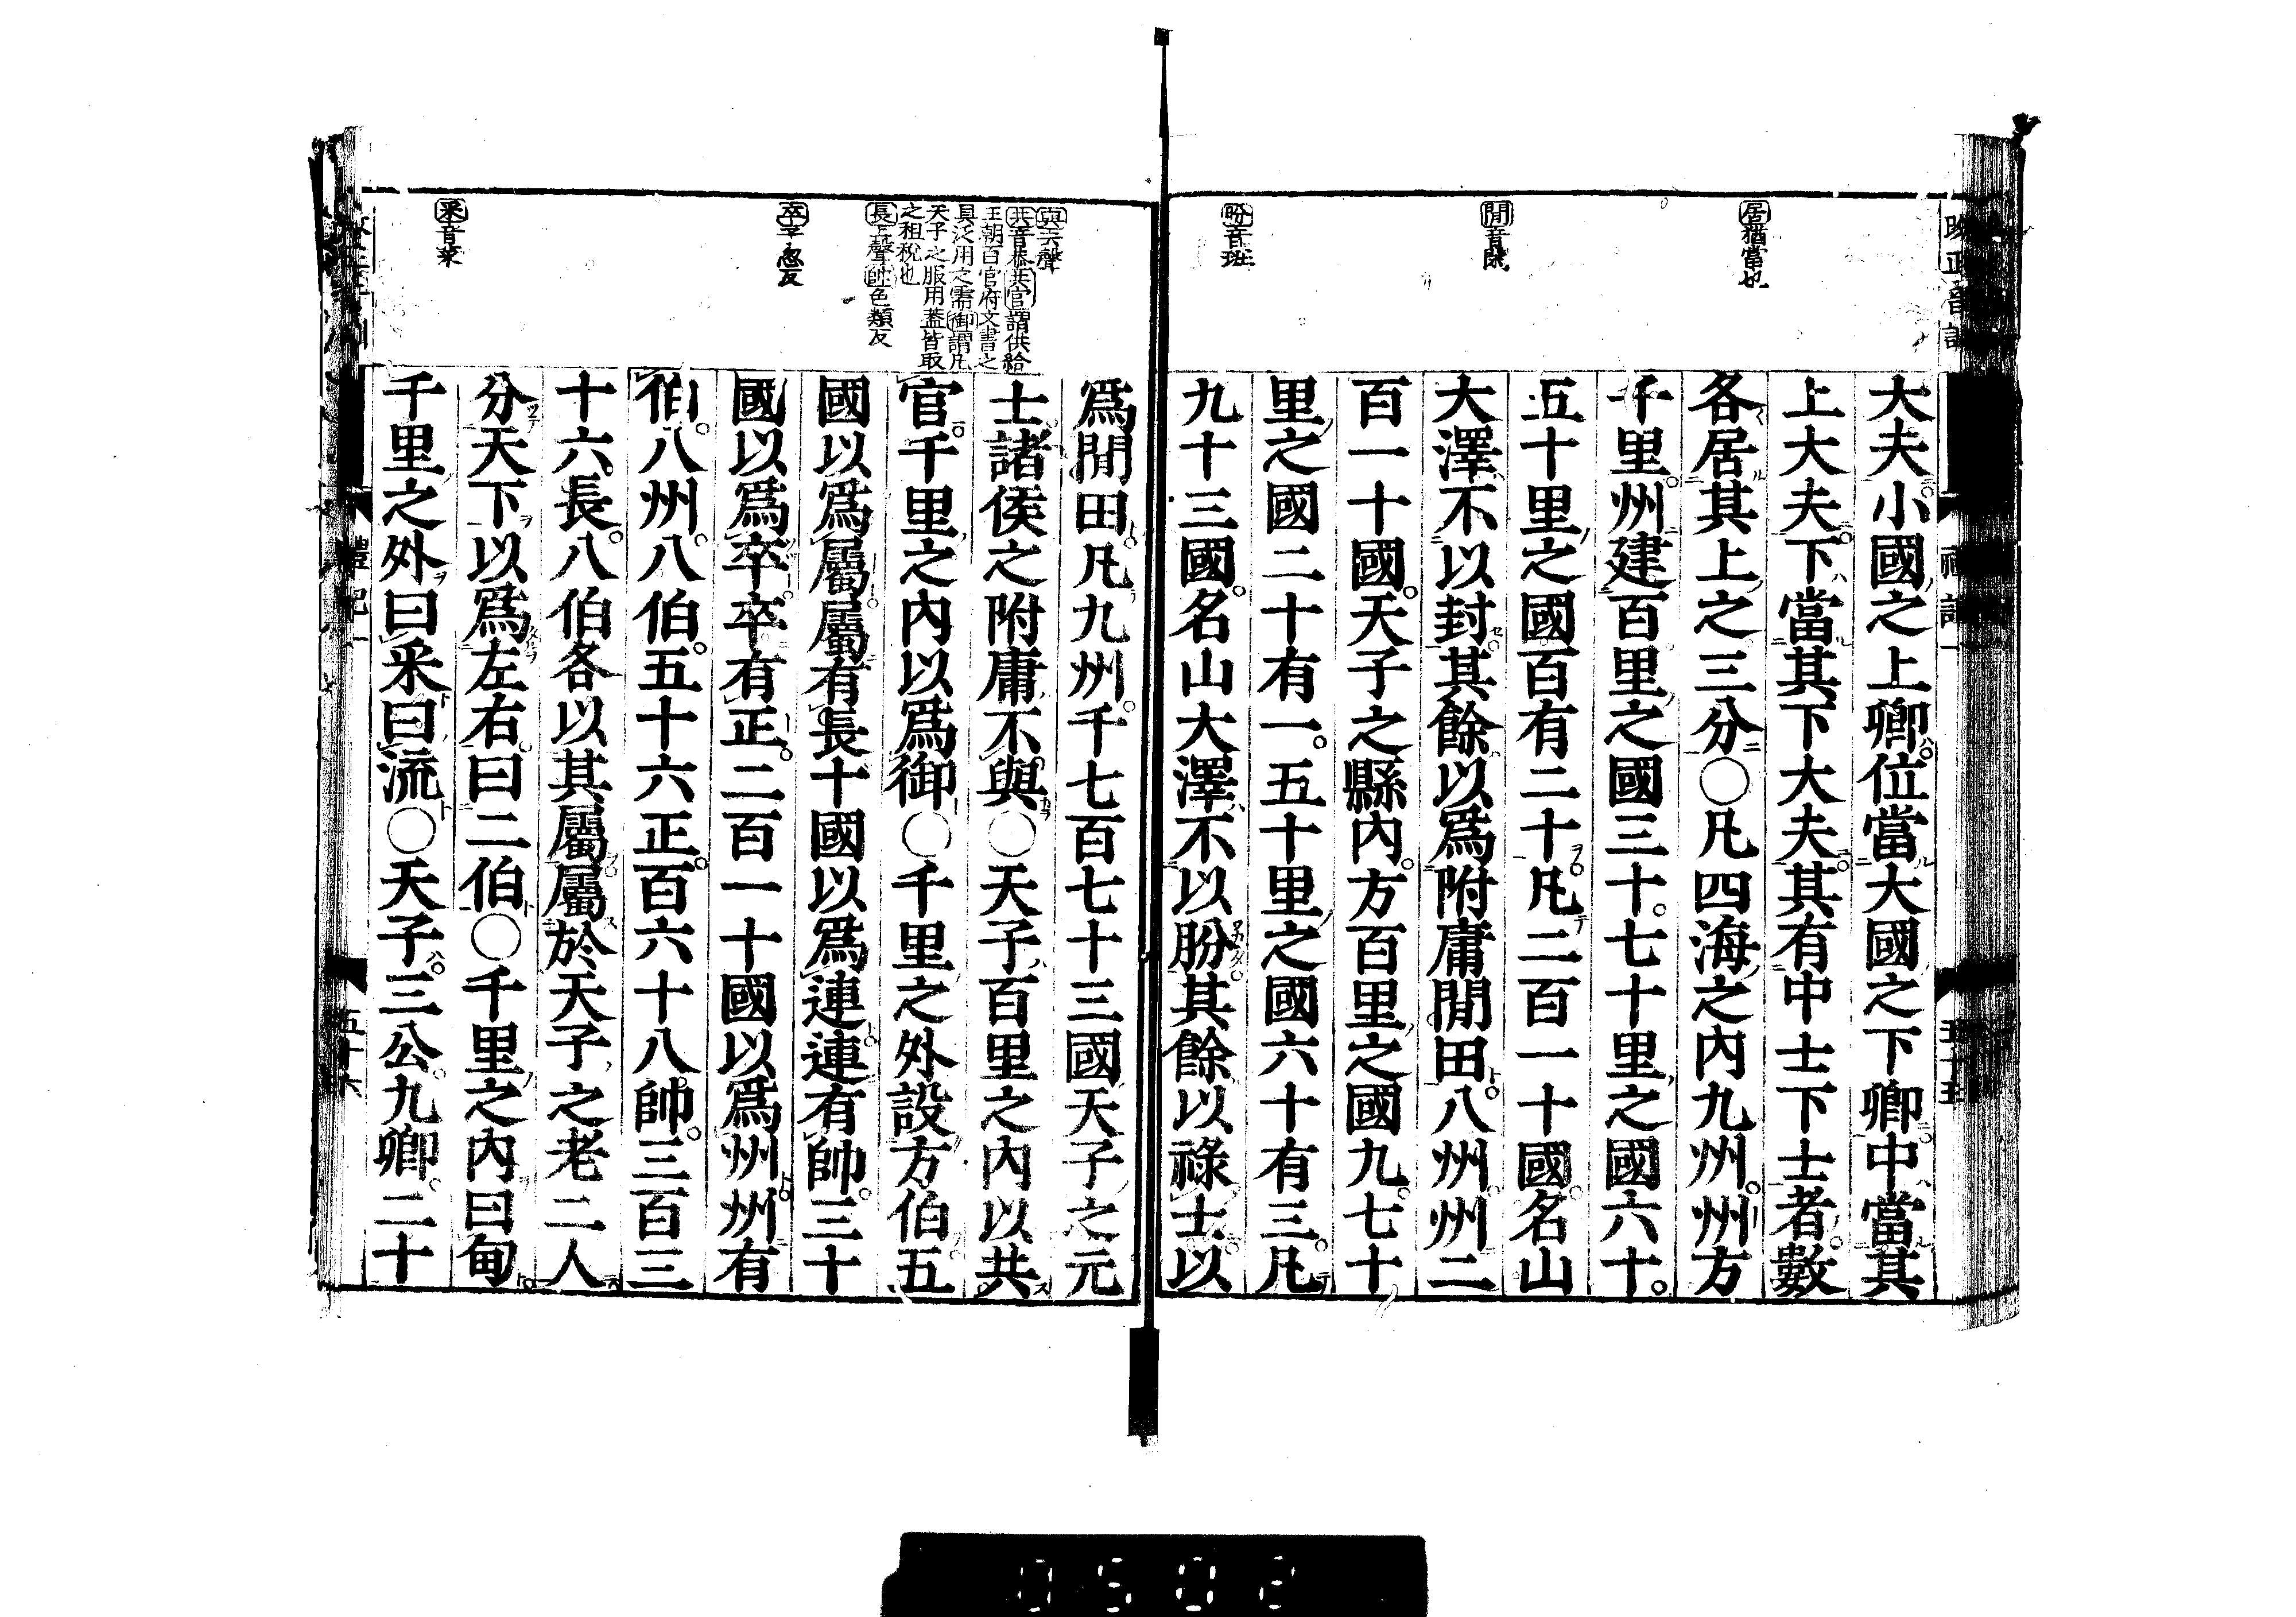 居猶當也
閒音閑
盼音班
大夫小國之上卿位當大國之下卿中當其
上大夫下當其下大夫其有中士下士者數
各居其上之三分○凡四海之內九州州方
千里州建百里之國三十七十里之國六十
五十里之國百有二十凡二百一十國名山
大澤不以封其餘以爲附庸閒田八州州二
百一十國天子之縣內方百里之國九七十
里之國二十有一五十里之國六十有三凡
九十三國名山大澤不以盼其餘以祿士以
與去聲
共音恭共官謂供給
王朝百官府文書之
具泛用之需御謂凡
天子之服用蓋皆取
之租稅也
長上聲帥色類反
卒子忽反
采音菜
爲閒田凡九州千七百七十三國天子之元
士諸侯之附庸不與○天子百里之內以共
官千里之內以爲御○千里之外設方伯五
國以爲屬屬有長十國以爲連連有帥三十
國以爲卒卒有正二百一十國以爲州州有
伯八州八伯五十六正百六十八帥三百三
十六長八伯各以其屬屬於天子之老二人
分天下以爲左右曰二伯○千里之內曰甸
千里之外曰采曰流○天子三公九卿二十
禮記一
五十六
0502